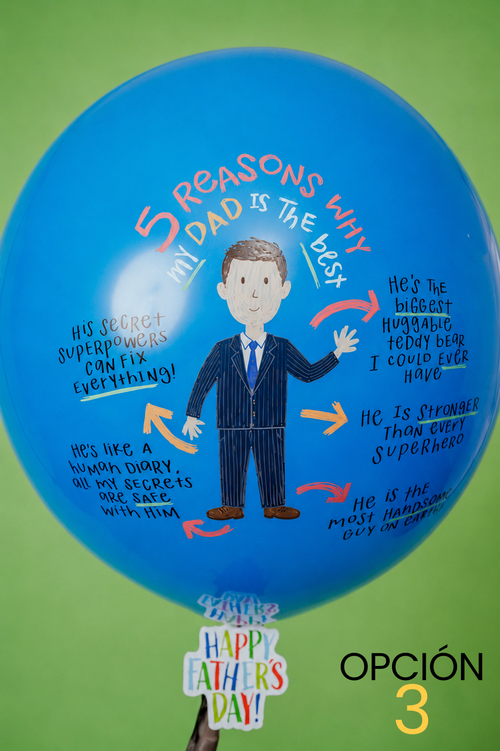 5 REASONS WHY
my DAD IS THE best
HE'S THE
biGGEST
HUGGABLE
teDDY bEAR
I COULD EVER
HAVE
HiS SECRET
SUPERPOWERS
CAN FIX
EVERYTHiNG!
HE IS STRONGER
THAN EVERY
SUPERHERO
HE'S LIKE A
HUMAN DIARY,
ALL MY SECRETS
ARE SAFE
WITH HIM
HE IS THE
MOST HANDSOME
GUY ON EARTH!
HAPPY
FATHER'S
DAY!
OPCIÓN
3